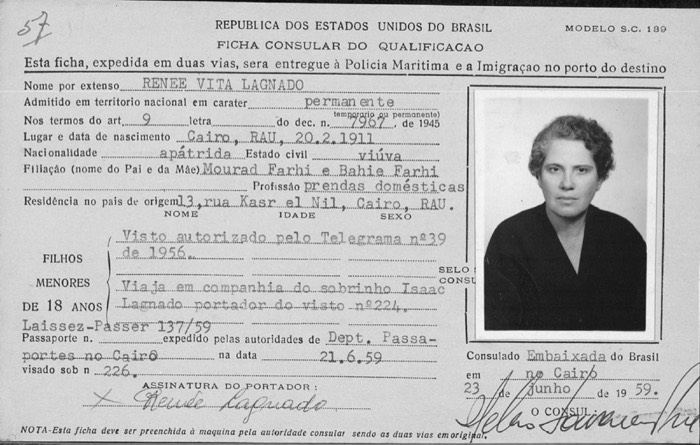 57
REPUBLICA DOS ESTADOS UNIDOS DO BRASIL
MODELO S.C. 139
FICHA CONSULAR DO QUALIFICACAO
Esta ficha, expedida em duas vias, sera entregue à Policia Maritima e a Imigraçao no porto do destino
Nome por extenso RENEE VITA LAGNADO
Admitido em territorio nacional em carater permanente
temporario ou permanente)
Nos termos do art. 9 letra do dec. n. 7967, de 1945
Lugar e data de nascimento Cairo, RAU, 20.2.1911
Nacionalidade apátrida Estado civil viúva
Filiação (nome do Pai e da Mãe) Mourad Farhi e Bahie Farhi
Profissão prendas domésticas
Residência no pais de origem 13, rua Kasr el Nil, Cairo, RAU.
NOME IDADE SEXO
FILHOS MENORES DE 18 ANOS
Visto autorizado pelo Telegrama nº39
de 1956.
SELO
CONSU
Viaja em companhia do sobrinho Isaac
Lagnado portador do visto nº224.
Laissez-Passer 137/59
Passaporte n. expedido pelas autoridades de Dept. Passa-
portes no Cairo na data 21.6.59
visado sob n 226.
ASSINATURA DO PORTADOR:
x Renée Lagnado
Consulado Embaixada do Brasil
em no Cairo
23 de junho de 1959.
O CONSUL
NOTA-Esta ficha deve ser preenchida à maquina pela autoridade consular sendo as duas vias em original.